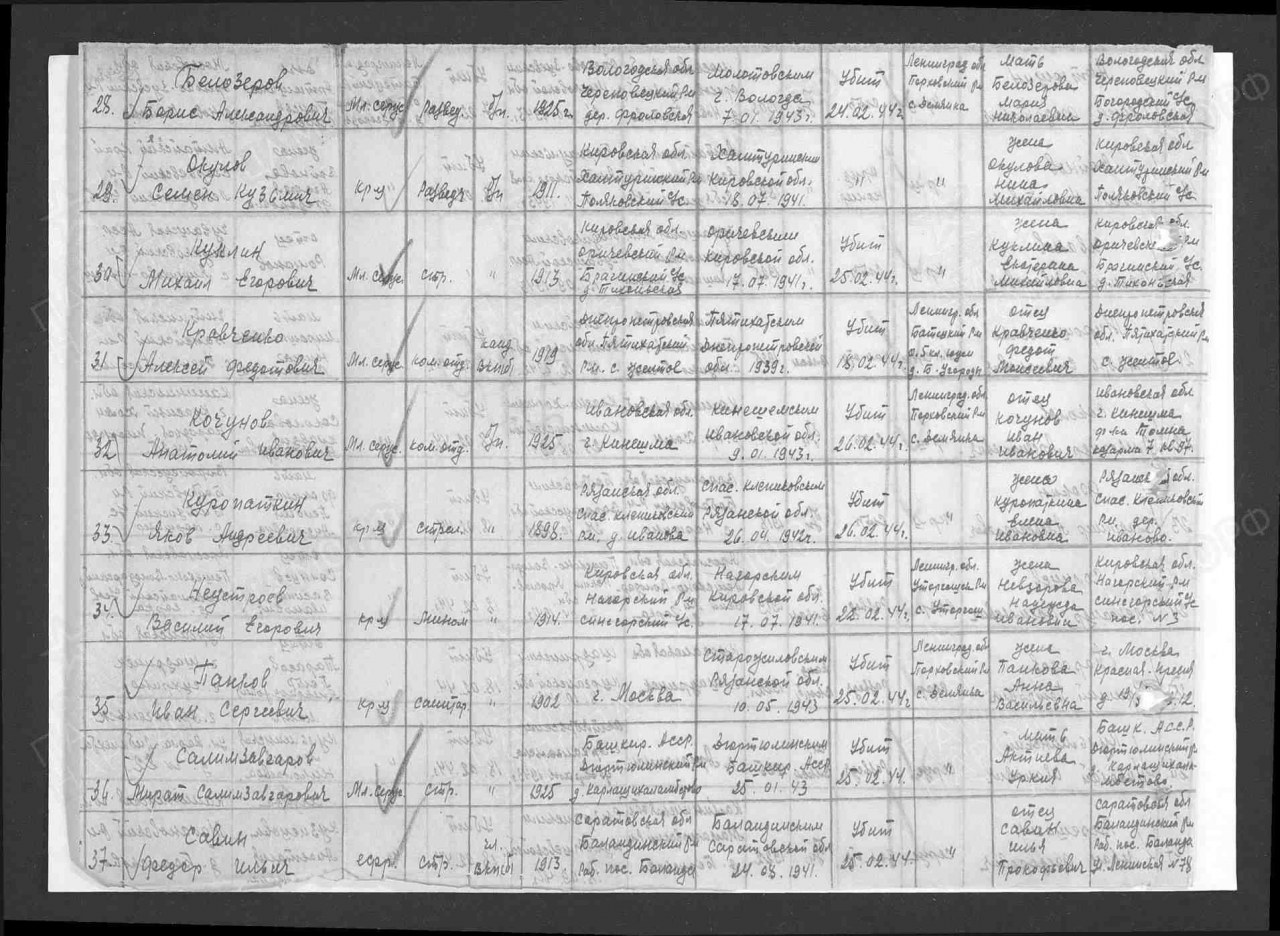 Белозеров
28. Борис Александрович
Мл. серж.
Развед.
Бп.
1925 г.
Вологодская обл
Череповецкий р-н
дер. Фроловская
Молотовским
г. Вологда
7.01.1943 г.
Убит
24.02.44 г.
Ленинград. обл
Порховский р-н
с. Демянка
Мать
Белозерова
Мария
Николаевна
Вологодская обл
Череповецкий р-н
Богородский с/с
д. Фроловская
29. Семен Кузьмич
кр-ц
Разведч
Бп
1911.
Кировская обл.
Халтуринский р-н
Поляковский с/с.
Халтуринским
Кировской обл.
18.07.1941.
"
"
жена
Окулова
Нина
Михайловна
Кировская обл
Халтуринский р-н
Поляковский с/с.
Куклин
30. Михаил Егорович
Мл. серж.
стр.
"
1913
Кировская обл.
Оричевский р-н
Брагинский с/с
д. Тихоньская
Оричевским
Кировской обл.
17.07.1941 г.
Убит
25.02.44 г.
"
жена
Куклина
Екатерина
Михайловна
Кировская обл
Оричевский р-н
Брагинский с/с.
д. Тихоньская
Кравченко
31. Алексей Федотович
Мл. серж
ком. отд.
канд.
ВКП(б)
1919
Днепропетровская
обл. Пятихатский
р-н. с. Желтов
Пятихатским
Днепропетровской
обл. 1939 г.
Убит
18.02.44 г.
Ленингр. обл
Батецкий р-н
д. Б. Угороды
отец
Кравченко
Федот
Моисеевич
Днепропетровская
обл. Пятихатский р-н
с. Желтов
Кочунов
32. Анатолий Иванович
Мл. серж.
ком. отд.
Бп.
1925
Ивановская обл.
г. Кинешма
Кинешемским
Ивановской обл.
9.01.1943 г.
Убит
26.02.44 г.
Ленинград. обл
Порховский р-н
с. Демянка
отец
Кочунов
Иван
Иванович
Ивановская обл
г. Кинешма
казарма 7 кв 97.
Куропаткин
33. Яков Андреевич
кр-ц
стрел.
"
1898.
Рязанская обл.
Спас. Клепиковский
р-н. д. Иванова
Спас. Клепиковским
Рязанской обл.
26.04.1942 г.
Убит
26.02.44 г.
"
жена
Куропаткина
Елена
Ивановна
Рязанск обл.
Спас. Клепиковский
р-н. дер.
Иваново.
34. Василий Егорович
кр-ц
Мином
"
1914.
Кировская обл.
Нагорский р-н
Синегорский с/с.
Нагорским
Кировской обл.
17.07.1941.
Убит
22.02.44 г.
Ленингр. обл.
Уторгошск р-н
с. Уторгош
жена
Надежда
Ивановна
Кировская обл.
Нагорский р-н
Синегорский с/с
пос. № 3
Панков
35. Иван Сергеевич
кр-ц
санитар.
"
1902
г. Москва
Старожиловским
Рязанской обл.
10.05.1943
Убит
25.02.44 г.
Ленинград. обл
Порховский р-н
с. Демянка
жена
Панкова
Анна
Васильевна
г. Москва
Красная. Пресня
Салимзавгаров
36. Мират Салимзавгарович
Мл. серж
стр.
"
1925
Башкир. АССР.
Дюртюлинский р-н
Дюртюлинским
Башкир. АССР
25.01.43
Убит
25.02.44.
"
мать
Актиева
Уркия
Башк. АССР.
Дюртюлинский р-н
Савин
37. Федор Ильич
ефр.
стр.
чл.
ВКП(б)
1913
Саратовская обл
Баландинский р-н
Раб. пос. Баланда
Баландинским
Саратовской обл
24.08.1941.
Убит
25.02.44.
"
отец
Савин
Илья
Прокофьевич
Саратовская обл
Баландинский р-н
Раб. пос. Баланда
ул. Ленинская № 78